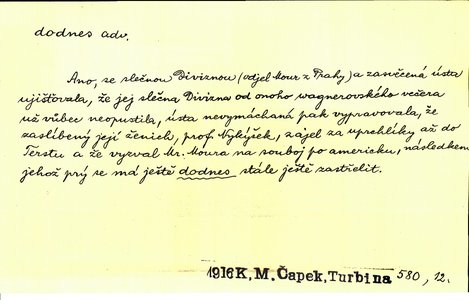 dodnes adv.
Ano, se slečnou Diviznou (odjel Mour z Prahy) a zasvěcená ústa
ujišťovala, že jej slečna Divizna od onoho wagnerovského večera
už vůbec neopustila, ústa nevymáchaná pak vypravovala, že
zaslíbený její ženich, prof. Nykýšek, zajel za uprchlíky až do
Terstu a že vyzval Mr. Moura na souboj po americku, následkem
jehož prý se má ještě dodnes stále ještě zastřelit.
1916 K, M. Čapek, Turbina 580, 12.